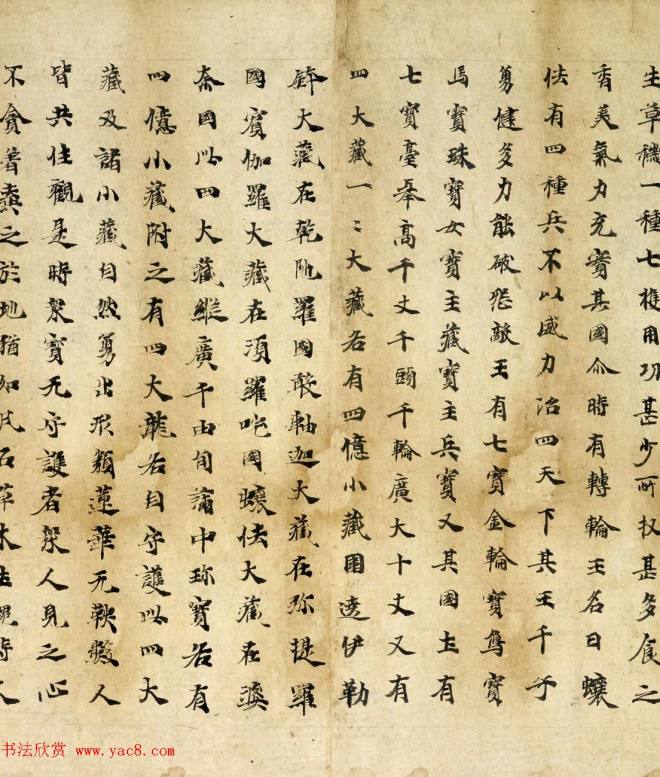 生草穢一種七穫用功甚少所收甚多食之
香美氣力充實其國尒時有轉輪王名曰蠰
佉有四種兵不以威力治四天下其王千子
勇健多力能破怨敵王有七寶金輪寶烏寶
馬寶珠寶女寶主藏寶主兵寶又其國土有
七寶臺舉高千丈千頭千輪廣大十丈又有
四大藏一〻大藏各有四億小藏圍遶伊勒
鉢大藏在乾陁羅國般軸迦大藏在弥提羅
國賓伽羅大藏在須羅吒國蠰佉大藏在婆
柰國以四大藏縱廣千由旬滿中珎寶各有
四億小藏附之有四大龍各自守護以四大
藏及諸小藏自然勇出形類蓮華无鞅數人
皆共住觀是時衆寶无守護者衆人見之心
不貪著棄之於地猶如瓦石草木土塊時人
书法欣赏 www.yac8.com